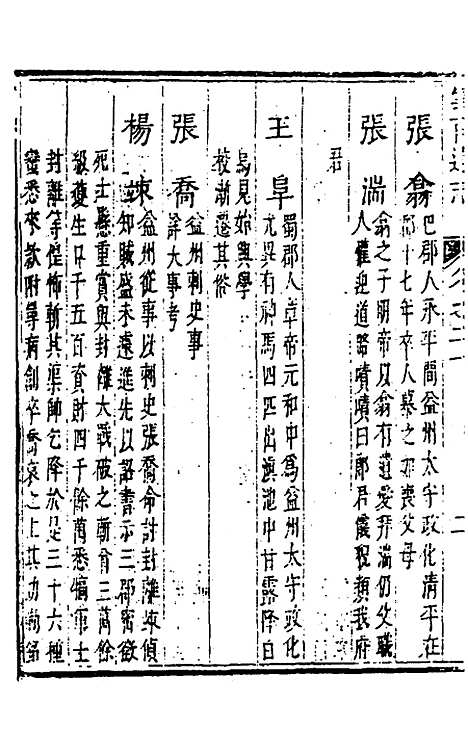 張翕 巴郡人永平間益州太守政化清平在
郡十七年卒人慕之如喪父母
張湍 翕之子明帝以翕有遺愛拜湍仍父職
人懽迎道路嘖嘖曰郎君儀貌類我府
君
王阜 蜀郡人章帝元和中為益州太守政化
尤異有神馬四匹出滇池中甘露降白
烏見始興學
校漸遷其俗
張喬 益州刺史事
詳大事考
楊竦 益州從事以刺史張喬命討封離竦偵
知賊盛未遠進先以詔書示三郡密徵
死士懸重賞與封離大戰破之斬首三萬餘
級獲生口千五百資財四千餘萬悉犒軍士
封離等惶怖斬其渠帥乞降於是三十六種
蠻悉來款附尋病創卒喬哀之上其功勒銘